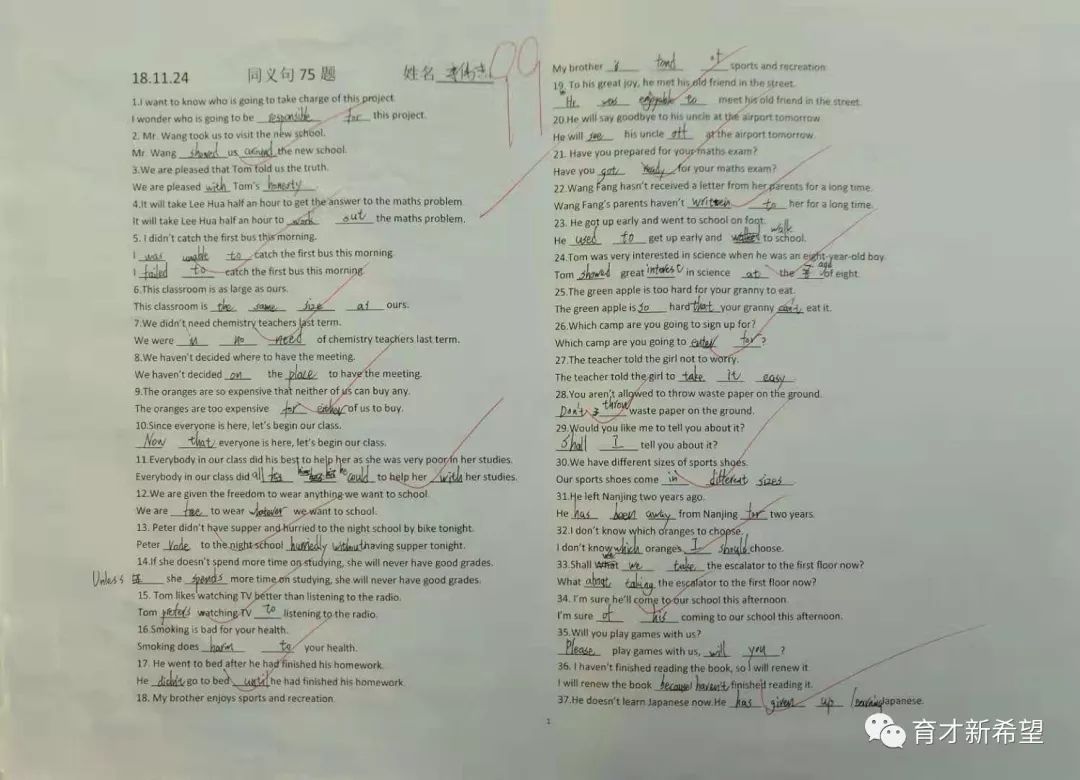 99
18.11.24 同义句 75 题 姓名
1.I want to know who is going to take charge of this project.
I wonder who is going to be responsible for this project.
2. Mr. Wang took us to visit the new school.
Mr. Wang showed us around the new school.
3.We are pleased that Tom told us the truth.
We are pleased with Tom's honesty.
4.It will take Lee Hua half an hour to get the answer to the maths problem.
It will take Lee Hua half an hour to work out the maths problem.
5. I didn't catch the first bus this morning.
I was unable to catch the first bus this morning.
I failed to catch the first bus this morning.
6.This classroom is as large as ours.
This classroom is the same size as ours.
7.We didn't need chemistry teachers last term.
We were in no need of chemistry teachers last term.
8.We haven't decided where to have the meeting.
We haven't decided on the place to have the meeting.
9.The oranges are so expensive that neither of us can buy any.
The oranges are too expensive for either of us to buy.
10.Since everyone is here, let's begin our class.
Now that everyone is here, let's begin our class.
11.Everybody in our class did his best to help her as she was very poor in her studies.
Everybody in our class did all he could to help her with her studies.
12.We are given the freedom to wear anything we want to school.
We are free to wear whatever we want to school.
13. Peter didn't have supper and hurried to the night school by bike tonight.
Peter rode to the night school hurriedly without having supper tonight.
14.If she doesn't spend more time on studying, she will never have good grades.
Unless she spends more time on studying, she will never have good grades.
15. Tom likes watching TV better than listening to the radio.
Tom prefers watching TV to listening to the radio.
16.Smoking is bad for your health.
Smoking does harm to your health.
17. He went to bed after he had finished his homework.
He didn't go to bed until he had finished his homework.
18. My brother enjoys sports and recreation.
My brother is fond of sports and recreation.
19. To his great joy, he met his old friend in the street.
He was enjoyable to meet his old friend in the street.
20.He will say goodbye to his uncle at the airport tomorrow.
He will see his uncle off at the airport tomorrow.
21. Have you prepared for your maths exam?
Have you got ready for your maths exam?
22.Wang Fang hasn't received a letter from her parents for a long time.
Wang Fang's parents haven't written to her for a long time.
23. He got up early and went to school on foot.
He used to get up early and walk to school.
24.Tom was very interested in science when he was an eight-year-old boy.
Tom showed great interest in science at the age of eight.
25.The green apple is too hard for your granny to eat.
The green apple is so hard that your granny can't eat it.
26.Which camp are you going to sign up for?
Which camp are you going to enter for?
27.The teacher told the girl not to worry.
The teacher told the girl to take it easy
28.You aren't allowed to throw waste paper on the ground.
Don't throw waste paper on the ground.
29.Would you like me to tell you about it?
Shall I tell you about it?
30.We have different sizes of sports shoes.
Our sports shoes come in different sizes
31.He left Nanjing two years ago.
He has been away from Nanjing for two years.
32.I don't know which oranges to choose.
I don't know which oranges I should choose.
33.Shall we take the escalator to the first floor now?
What about taking the escalator to the first floor now?
34. I'm sure he'll come to our school this afternoon.
I'm sure of his coming to our school this afternoon.
35.Will you play games with us?
Please play games with us, will you ?
36. I haven't finished reading the book, so I will renew it.
I will renew the book because I haven't finished reading it.
37.He doesn't learn Japanese now.He has given up learning Japanese.
1
育才新希望